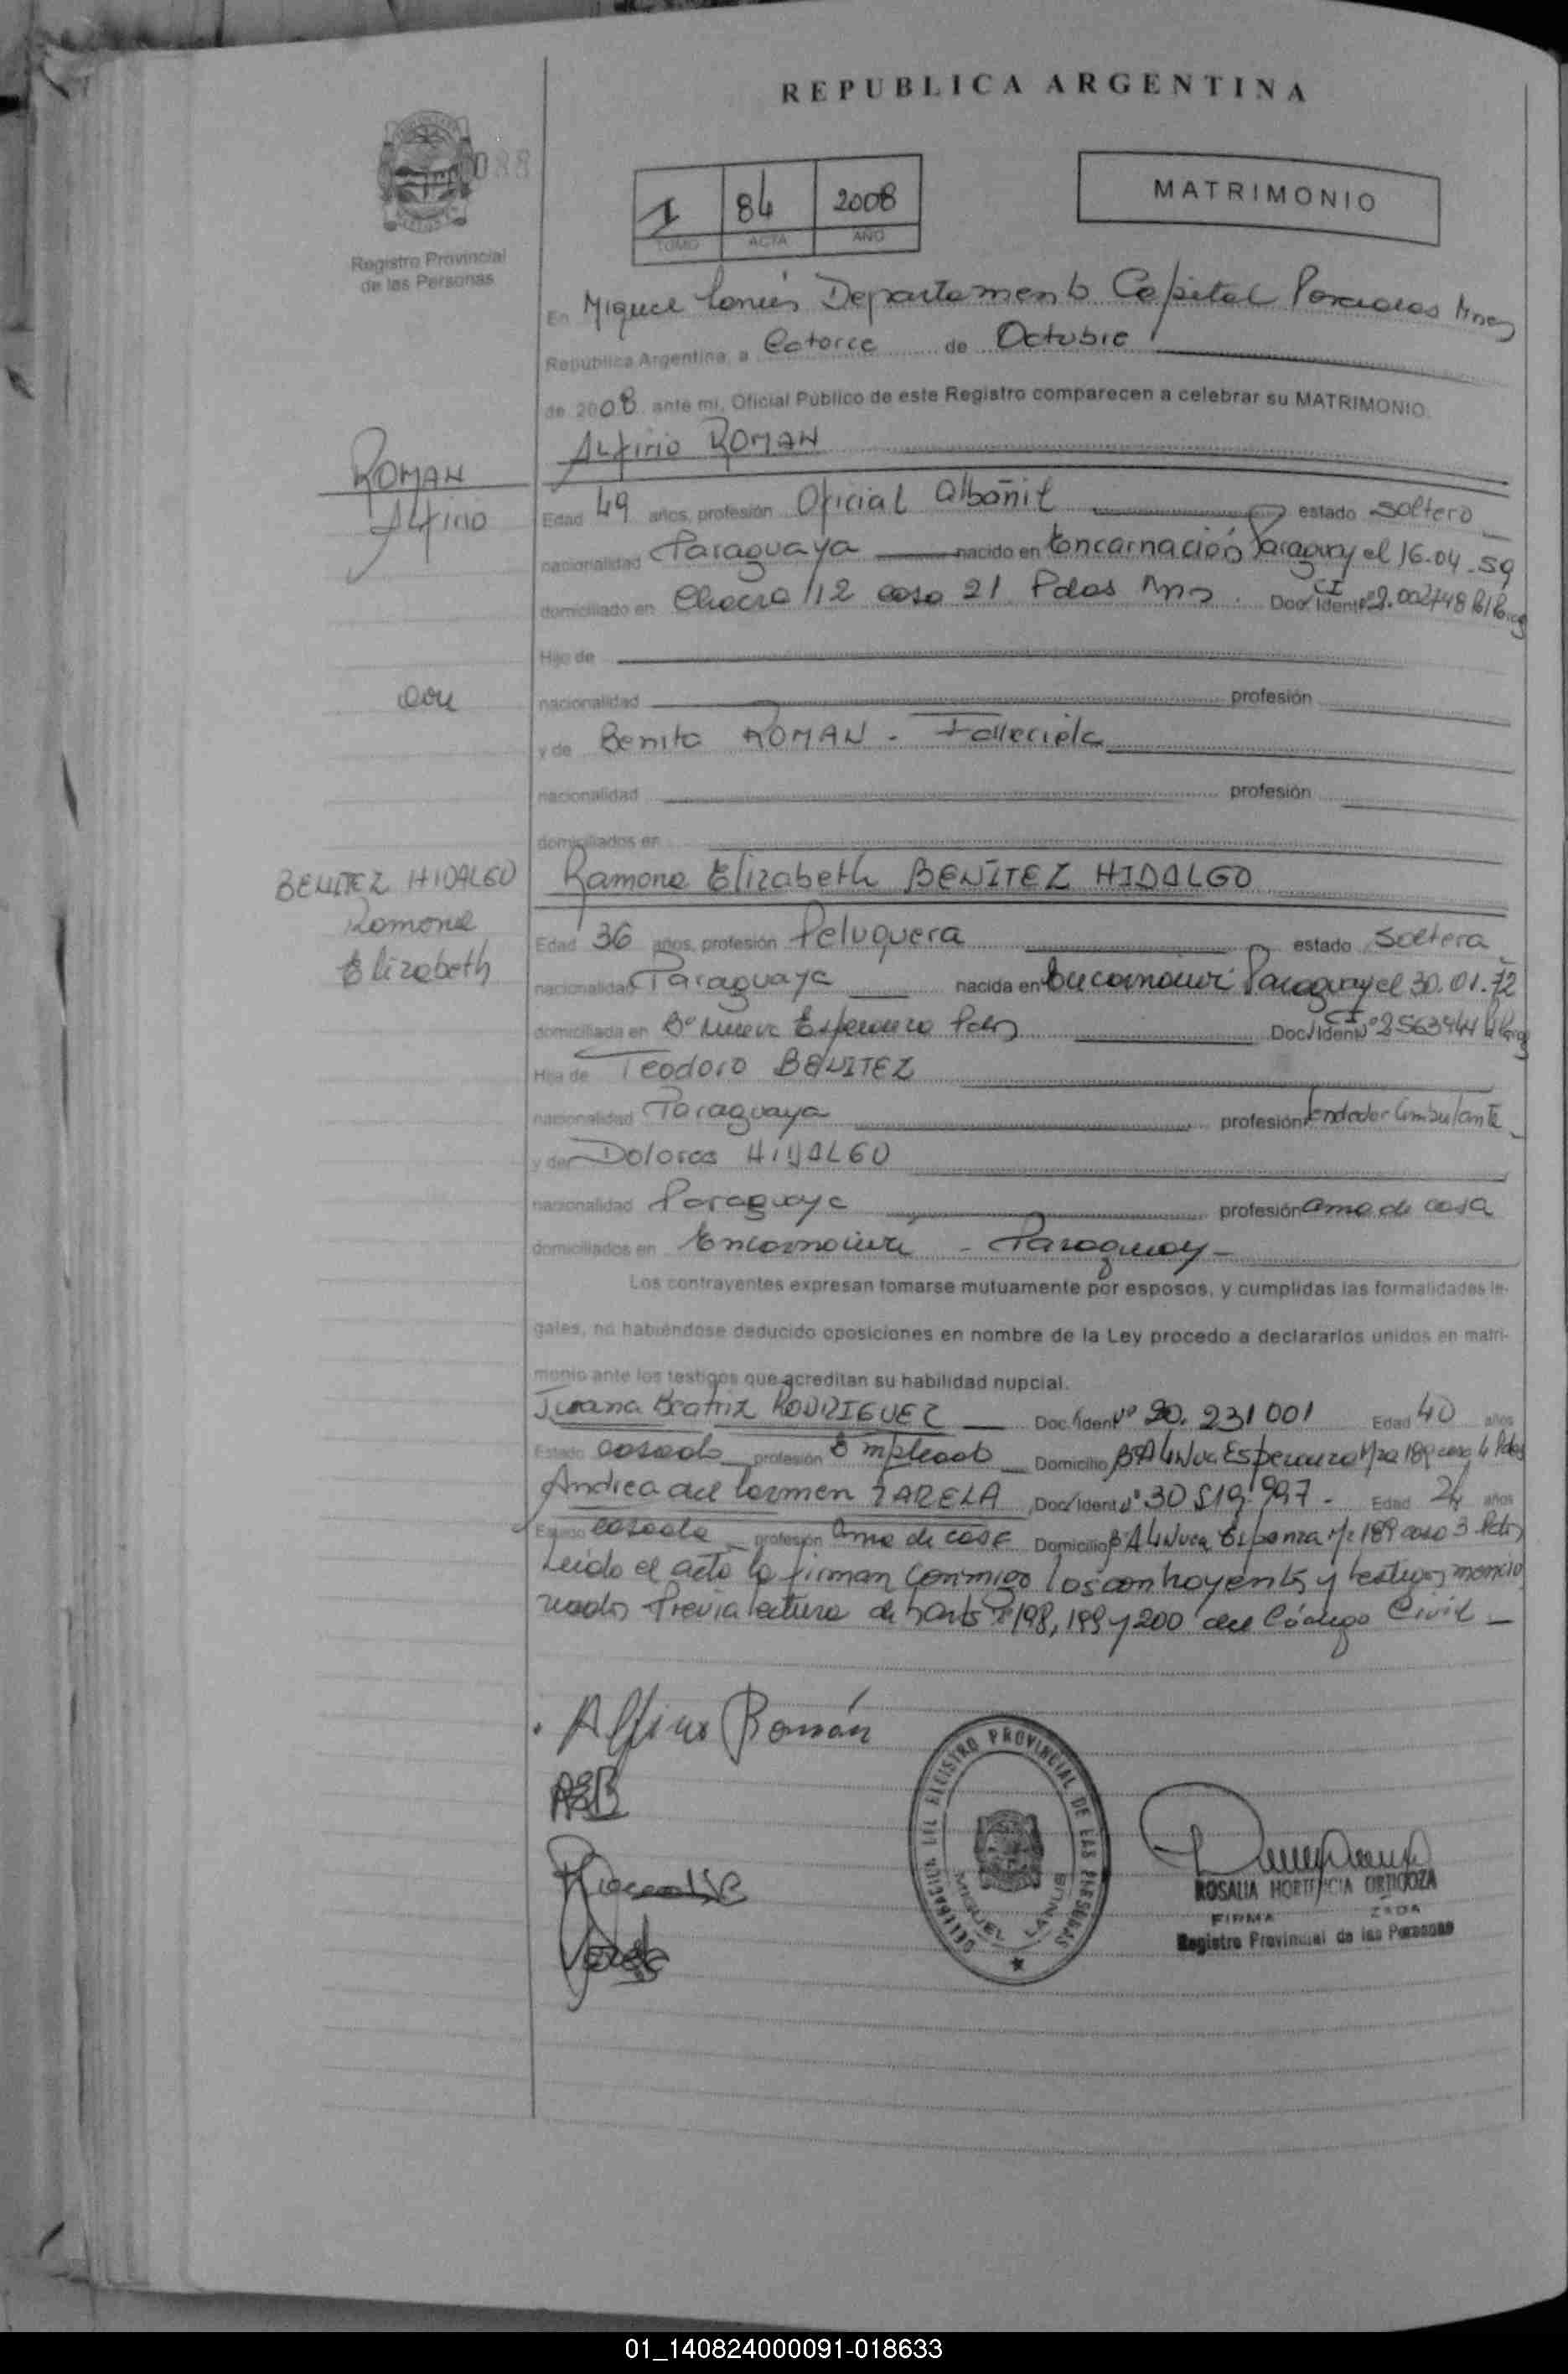 REPUBLICA ARGENTINA
088
Registro Provincial
de las Personas
1 84 2008
TOMO ACTA AÑO
MATRIMONIO
En Miguel Lanús Departamento Capital Posadas Mnes
República Argentina, a Catorce de Octubre
de 2008 ante mi, Oficial Público de este Registro comparecen a celebrar su MATRIMONIO
Alfirio ROMAN
ROMAN
Alfirio
Edad 49 años, profesión Oficial Albañil estado Soltero
nacionalidad Paraguaya nacido en Encarnación Paraguay el 16.04.59
domiciliado en Chacra 112 casa 21 Pdas Mns. Doc/Ident CI Nº 2.002748
Hijo de
con
nacionalidad profesión
y de Benita ROMAN - Fallecida
nacionalidad profesión
domiciliados en
BENITEZ HIDALGO
Ramona
Elizabeth
Ramona Elizabeth BENITEZ HIDALGO
Edad 36 años, profesión Peluquera estado Soltera
nacionalidad Paraguaya nacida en Encarnación Paraguay el 30.01.72
domiciliada en Bº Nueva Esperanza Pdas Doc/Ident CI Nº 2563944
Hija de Teodoro BENITEZ
nacionalidad Paraguaya profesión Vendedor Ambulante
y de Dolores HIDALGO
nacionalidad Paraguaya profesión ama de casa
domiciliados en Encarnación - Paraguay -
Los contrayentes expresan tomarse mutuamente por esposos, y cumplidas las formalidades le-
gales, no habiéndose deducido oposiciones en nombre de la Ley procedo a declararlos unidos en matri-
monio ante los testigos que acreditan su habilidad nupcial.
Juana Beatriz RODRIGUEZ Doc/Ident Nº 20.231001 Edad 40 años
Estado casada profesión Empleada Domicilio Bº A4 Nva Esperanza Mza 189 casa 4 Pdas
Andrea del Carmen VARELA Doc/Ident Nº 30519.997- Edad 24 años
Estado casada profesión Ama de casa Domicilio Bº A4 Nueva Mz 189 casa 3 Pdas
Leído el acta la firman conmigo los contrayentes y testigos mencio
nados Previa lectura de los Arts 198, 199 y 200 del Código Civil -
Alfirio Román
DELEGACION DEL REGISTRO PROVINCIAL DE LAS PERSONAS
MIGUEL LANUS
ROSALIA HORTENCIA ORTIGOZA
FIRMA ZADA
Registro Provincial de las Personas
01_140824000091-018633